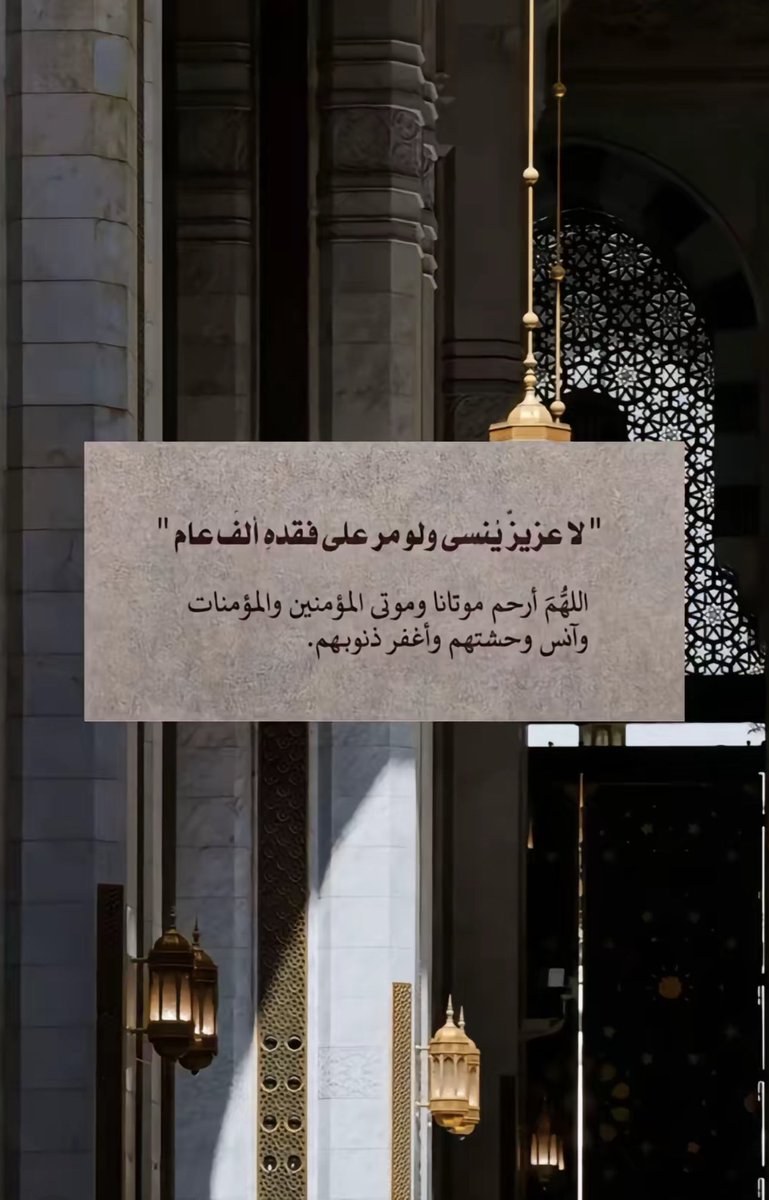 " لا عزيزٌ يُنسى ولو مر على فقدهِ ألفَ عام "
اللهُّمَ أرحم موتانا وموتى المؤمنين والمؤمنات
وآنس وحشتهم وأغفر ذنوبهم.